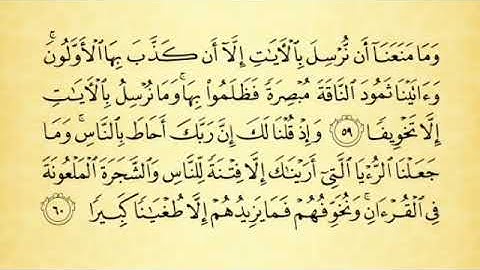 وَمَا مَنَعَنَآ أَن نُّرۡسِلَ بِٱلۡأٓيَٰتِ إِلَّآ أَن كَذَّبَ بِهَا ٱلۡأَوَّلُونَۚ
وَءَاتَيۡنَا ثَمُودَ ٱلنَّاقَةَ مُبۡصِرَةٗ فَظَلَمُواْ بِهَاۚ وَمَا نُرۡسِلُ بِٱلۡأٓيَٰتِ
إِلَّا تَخۡوِيفٗا ٥٩ وَإِذۡ قُلۡنَا لَكَ إِنَّ رَبَّكَ أَحَاطَ بِٱلنَّاسِۚ وَمَا
جَعَلۡنَا ٱلرُّءۡيَا ٱلَّتِيٓ أَرَيۡنَٰكَ إِلَّا فِتۡنَةٗ لِّلنَّاسِ وَٱلشَّجَرَةَ ٱلۡمَلۡعُونَةَ
فِي ٱلۡقُرۡءَانِۚ وَنُخَوِّفُهُمۡ فَمَا يَزِيدُهُمۡ إِلَّا طُغۡيَٰنٗا كَبِيرٗا ٦٠